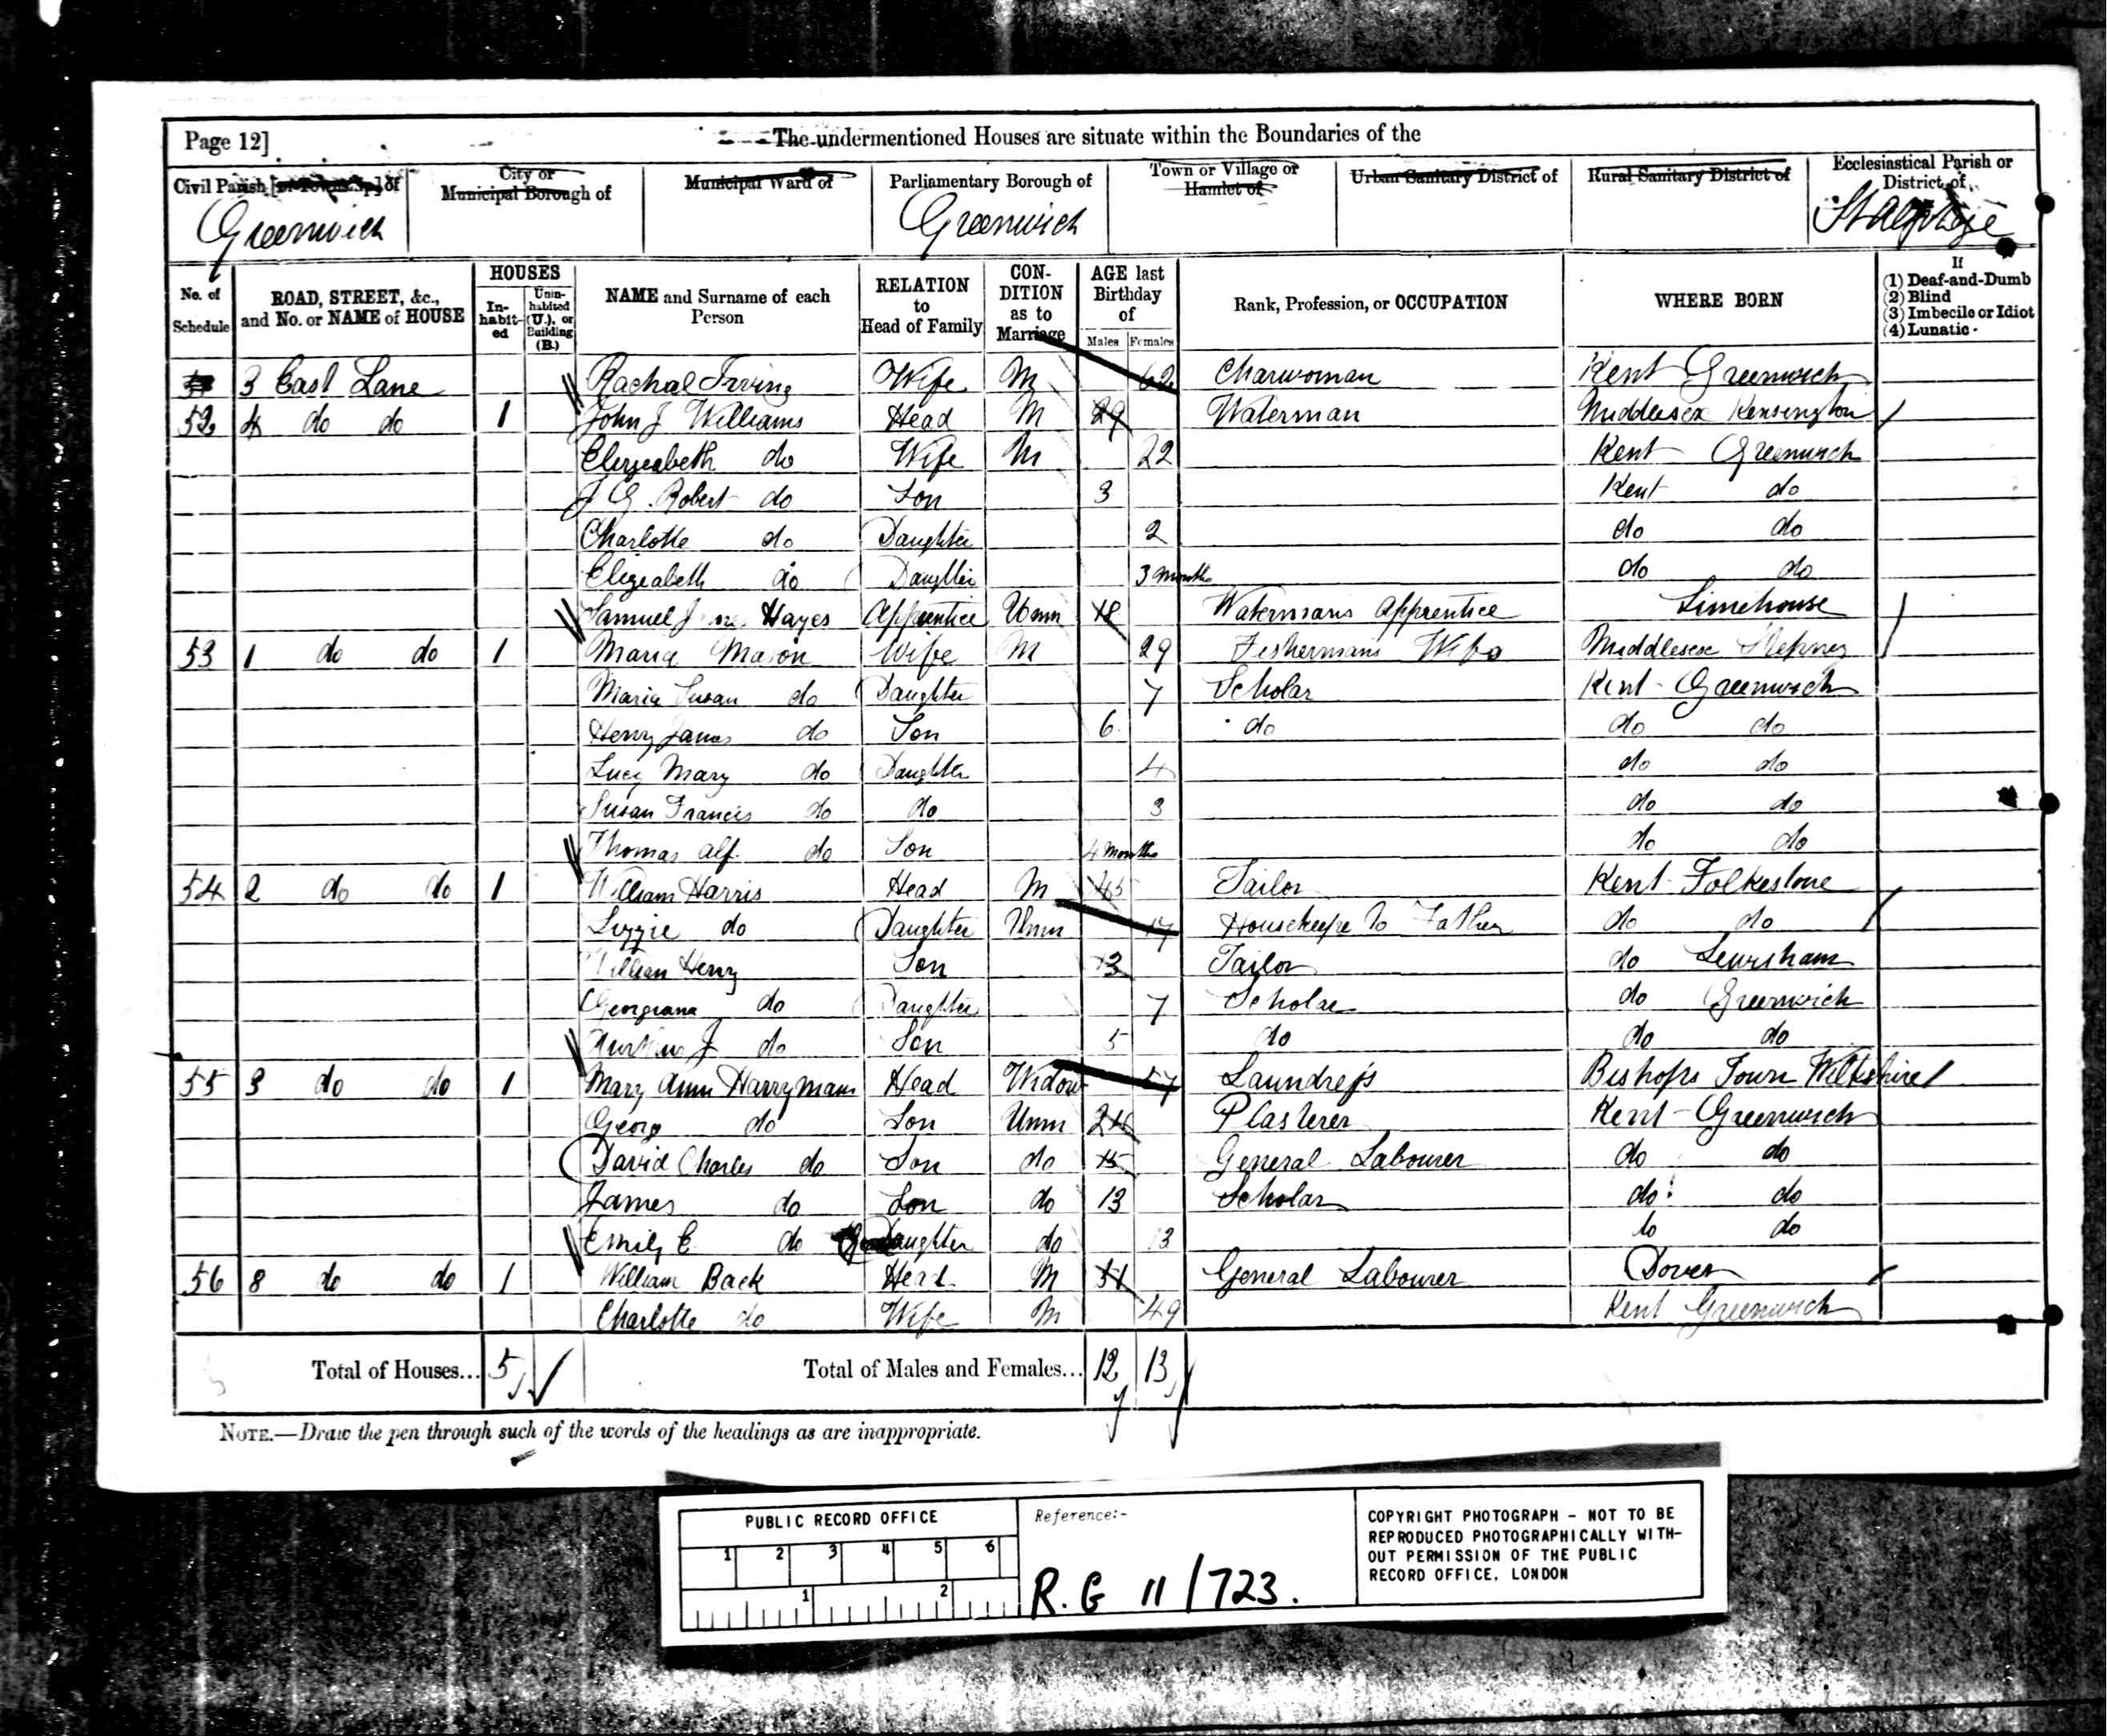 Page 12]
The undermentioned Houses are situate within the Boundaries of the
Civil Parish [or Township] of
Greenwich
City or Municipal Borough of
Municipal Ward of
Parliamentary Borough of
Greenwich
Town or Village or Hamlet of
Urban Sanitary District of
Rural Sanitary District of
Ecclesiastical Parish or District of
St Alphege
No. of Schedule
ROAD, STREET, &c., and No. or NAME of HOUSE
HOUSES
In-habit-ed
Unin-habited (U.), or Building (B.)
NAME and Surname of each Person
RELATION to Head of Family
CON-DITION as to Marriage
AGE last Birthday of
Males
Females
Rank, Profession, or OCCUPATION
WHERE BORN
If
(1) Deaf-and-Dumb
(2) Blind
(3) Imbecile or Idiot
(4) Lunatic
3 East Lane Rachal Irving Wife M 62 Charwoman Kent Greenwich
52 4 do do 1 John J Williams Head M 29 Waterman Middlesex Kensington
Elizeabeth do Wife M 22 Kent Greenwich
J G. Robert do Son 3 Kent do
Charlotte do Daughter 2 do do
Elizeabeth do Daughter 3 months do do
Samuel Hayes Apprentice Unm 18 Watermans Apprentice Limehouse
53 1 do do 1 Maria Mason Wife M 29 Fishermans Wife Middlesex Stepney
Maria Susan do Daughter 7 Scholar Kent Greenwich
Henry James do Son 6 do do do
Lucy Mary do Daughter 4 do do
Susan Francis do do 3 do do
Thomas Alf. do Son 4 Months do do
54 2 do do 1 William Harris Head M 45 Tailor Kent Folkestone
Lizzie do Daughter Unm 17 Housekeepe to Father do do
William Henry Son 13 Tailor do Lewisham
Georgiana do Daughter 7 Scholar do Greenwich
J do Son 5 do do do
55 3 do do 1 Mary Ann Harrymans Head Widow 57 Laundress Bishops Town Wiltshire
Georg do Son Unm Plasterer Kent Greenwich
David Charles do Son do 15 General Labourer do do
James do Son do 13 Scholar do do
Emily E do Daughter do 13 do do
56 8 do do 1 William Back Head M 51 General Labourer Dover
Charlotte do Wife M 49 Kent Greenwich
Total of Houses... 5
Total of Males and Females... 12 13
NOTE.—Draw the pen through such of the words of the headings as are inappropriate.
PUBLIC RECORD OFFICE
1 2 3 4 5 6
1 2
Reference:-
R.G 11/723.
COPYRIGHT PHOTOGRAPH - NOT TO BE
REPRODUCED PHOTOGRAPHICALLY WITH-
OUT PERMISSION OF THE PUBLIC
RECORD OFFICE, LONDON